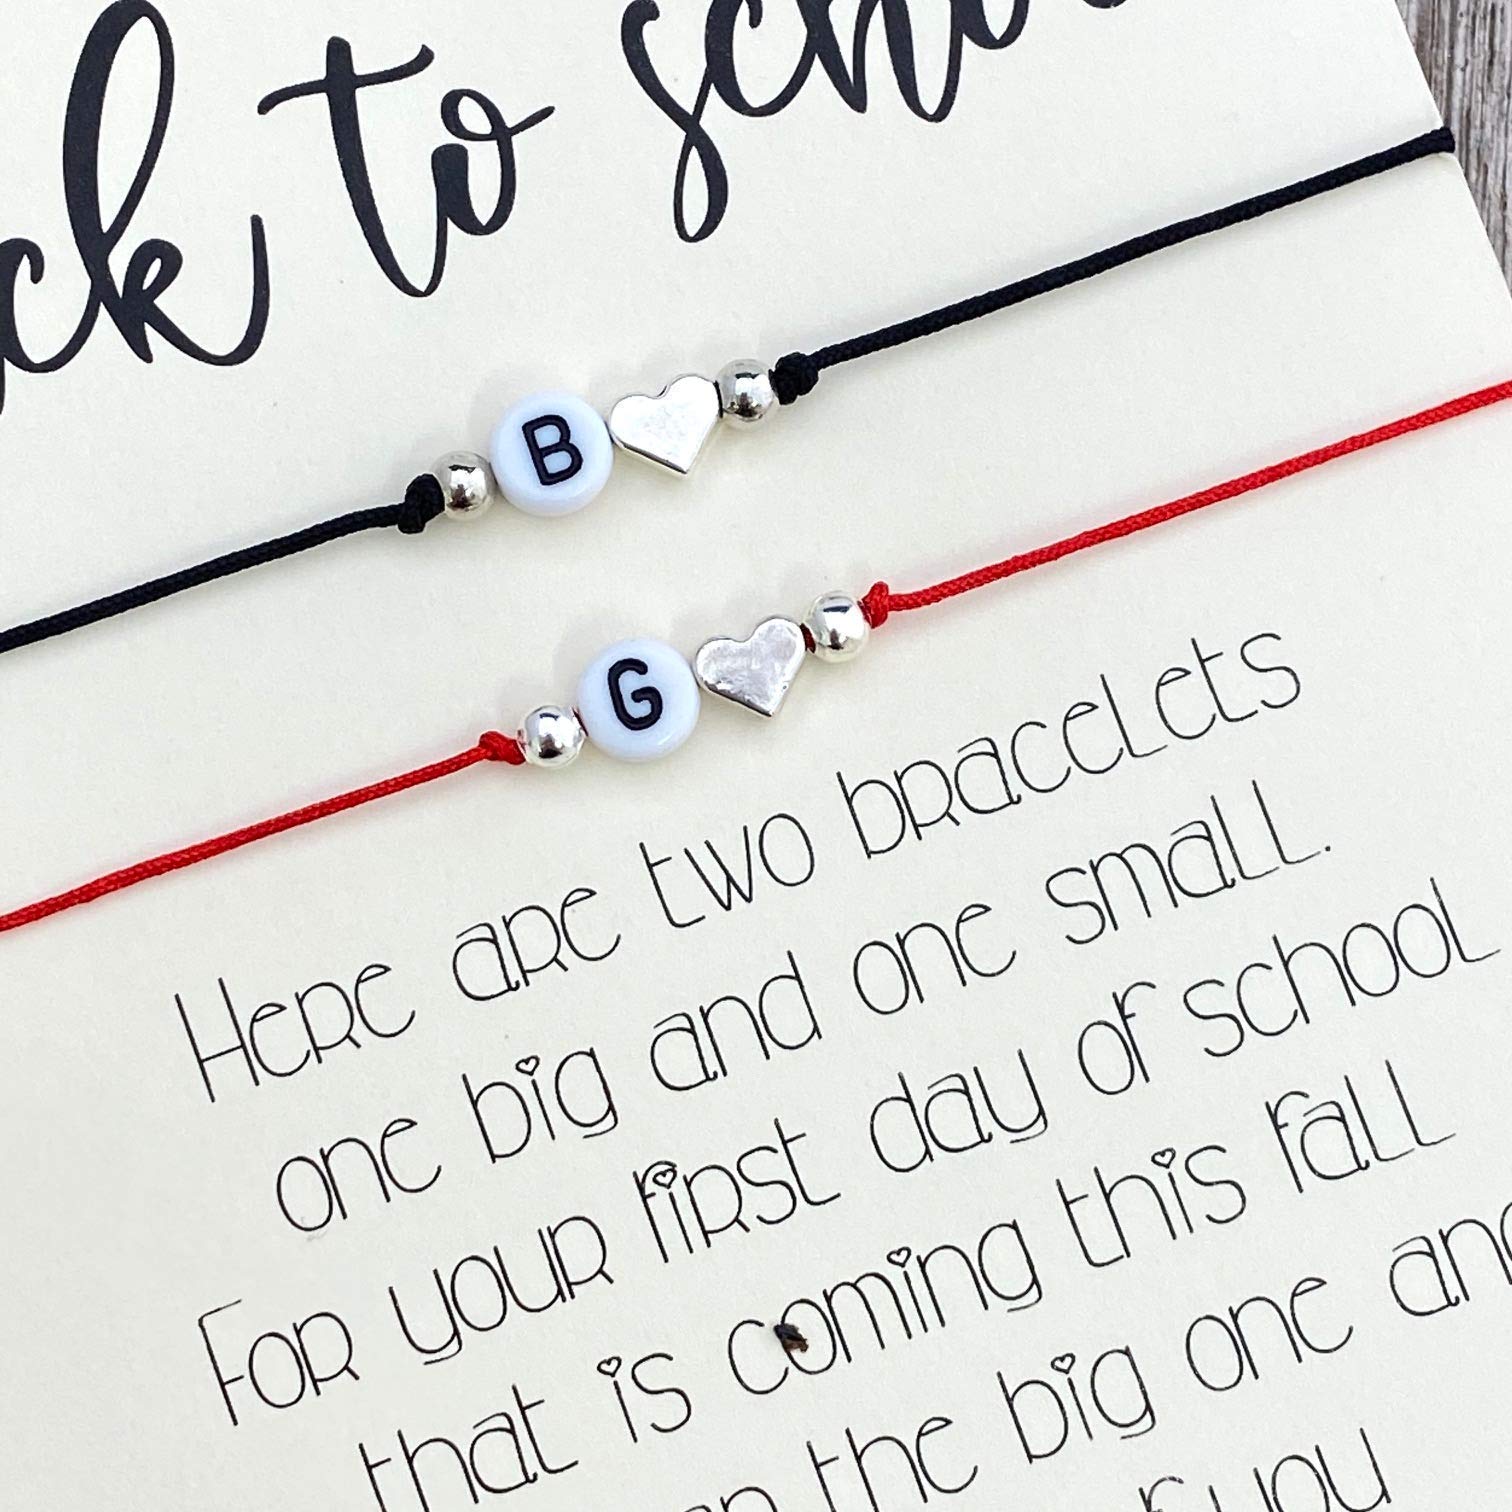 to
B
G
Here are two bracelets
one big and one small.
For your first day of school
that is coming this fall
the big one
you